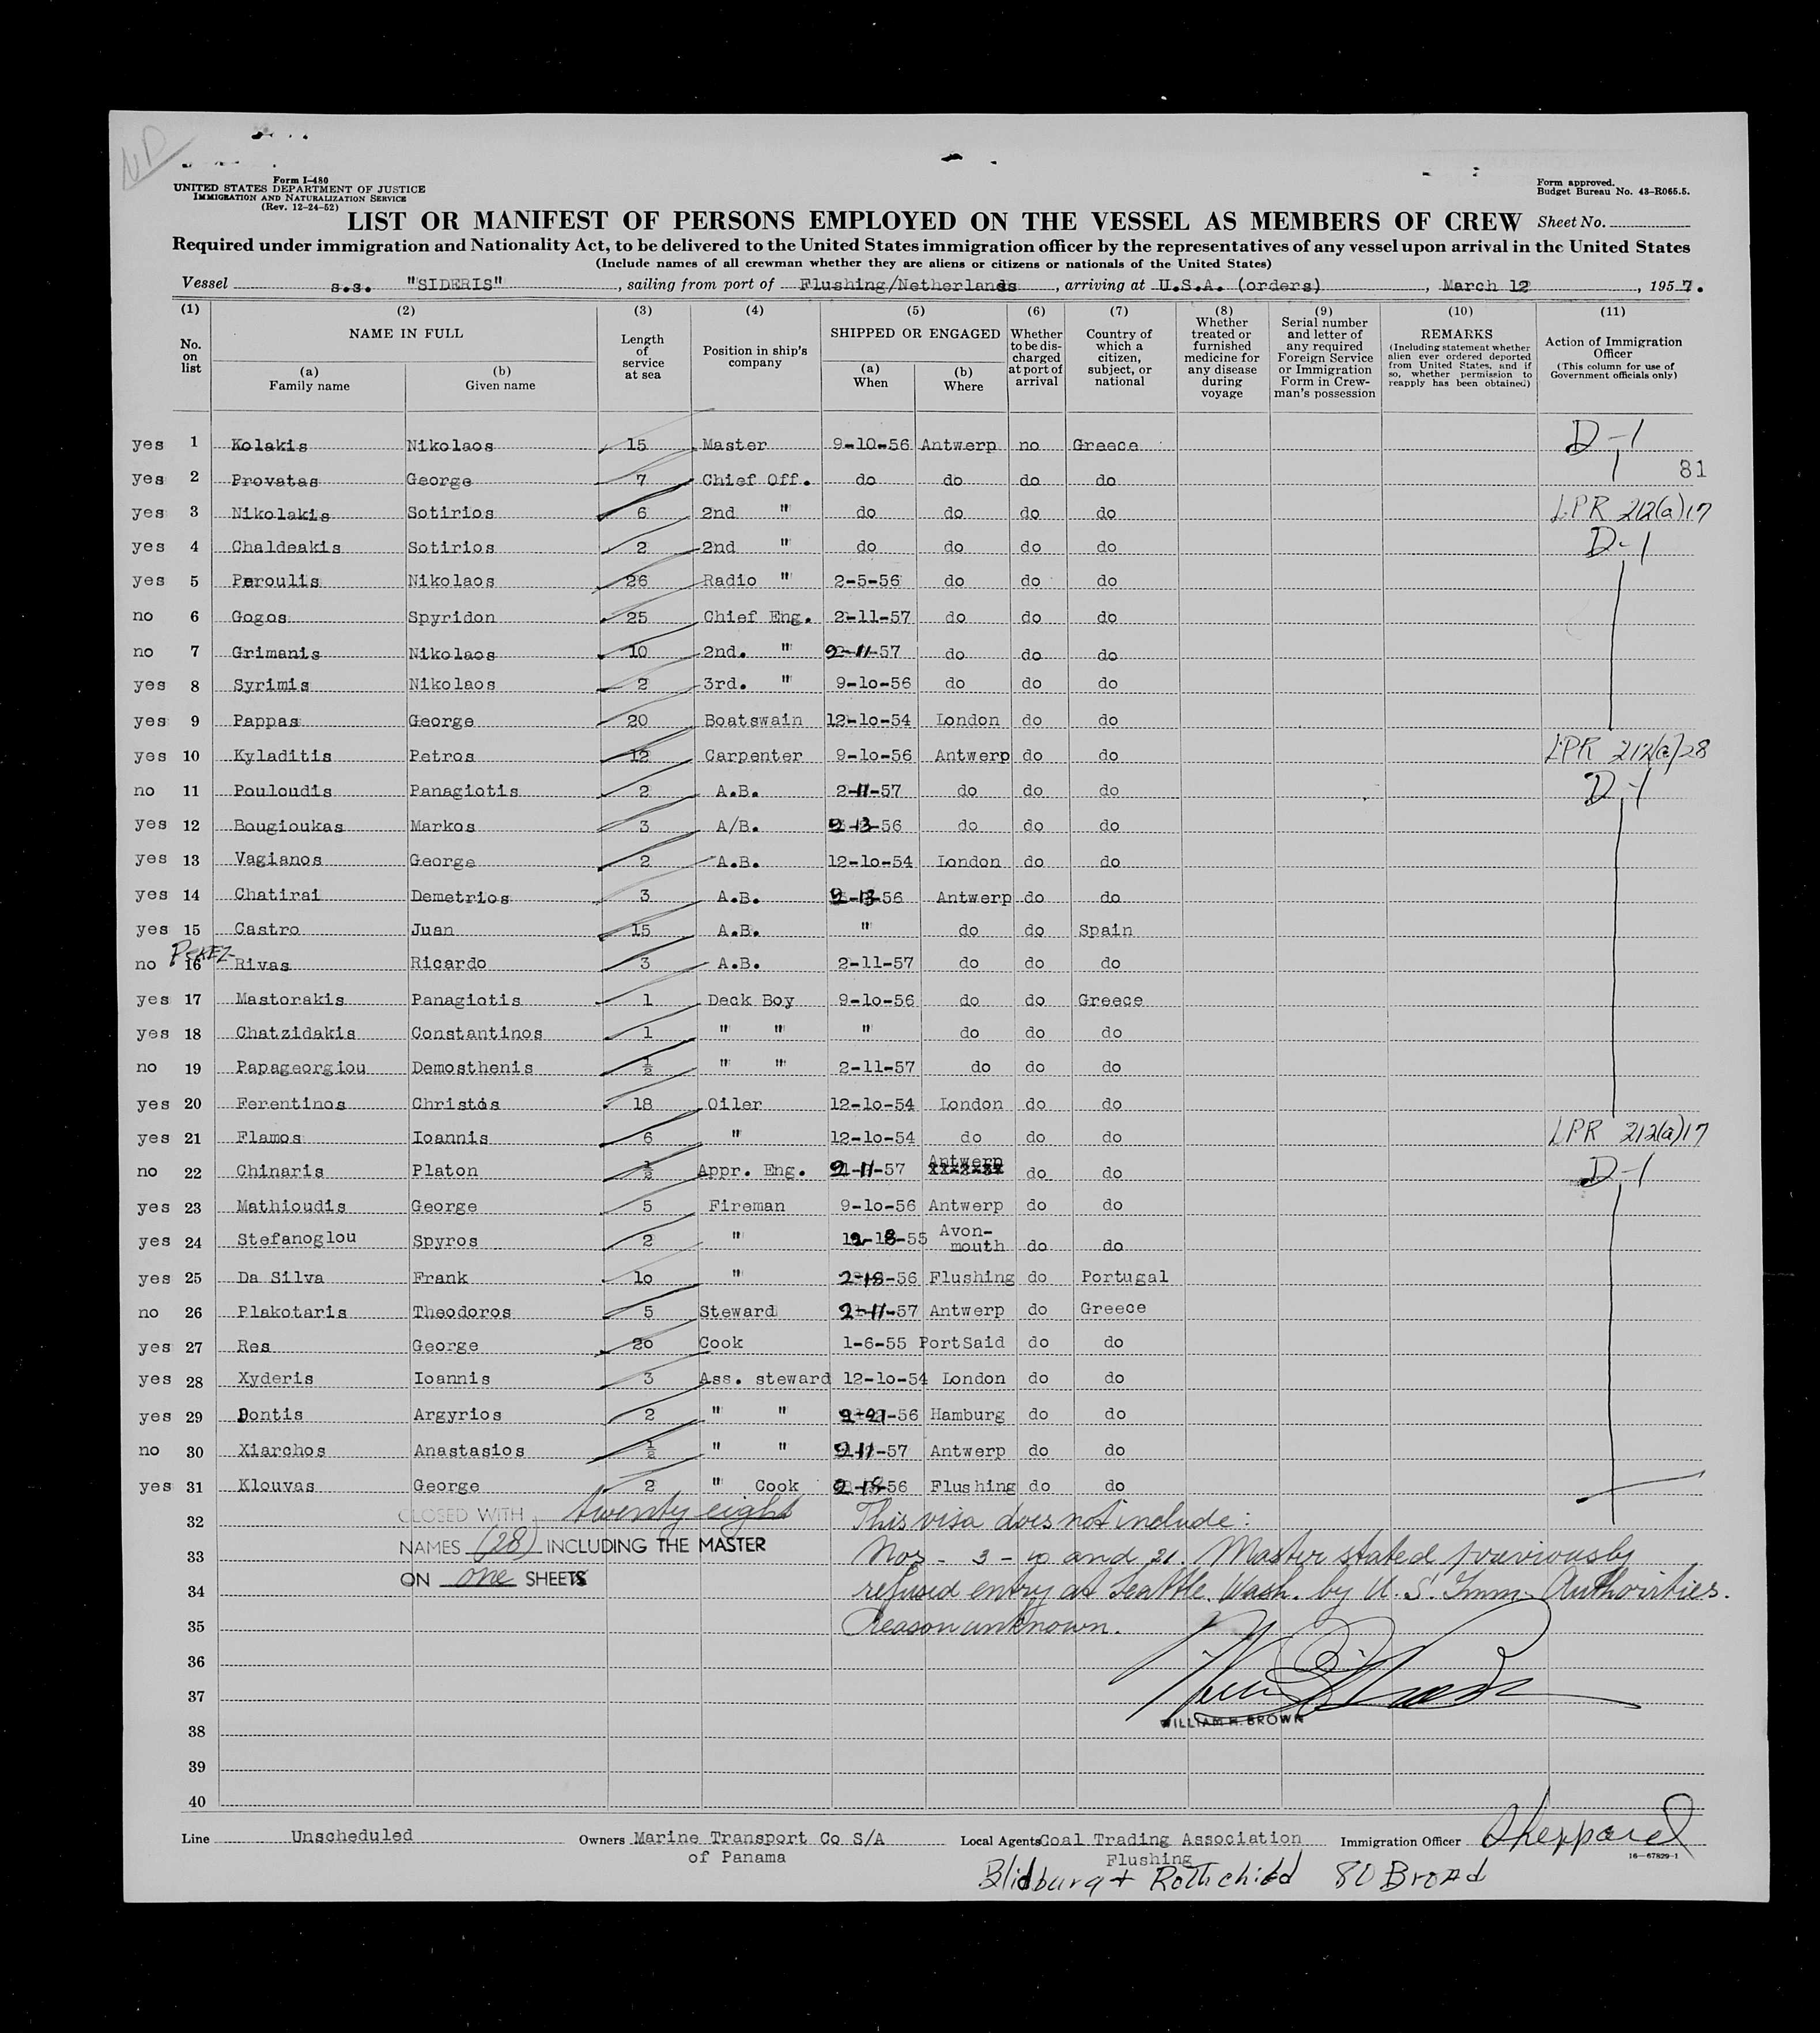 ND
Form I-480
UNITED STATES DEPARTMENT OF JUSTICE
IMMIGRATION AND NATURALIZATION SERVICE
(Rev. 12-24-52)
Form approved.
Budget Bureau No. 43-R065.5.
LIST OR MANIFEST OF PERSONS EMPLOYED ON THE VESSEL AS MEMBERS OF CREW Sheet No.
Required under immigration and Nationality Act, to be delivered to the United States immigration officer by the representatives of any vessel upon arrival in the United States
(Include names of all crewman whether they are aliens or citizens or nationals of the United States)
Vessel s.s. "SIDERIS", sailing from port of Flushing/Netherlands, arriving at U.S.A. (orders), March 12, 1957.
(1) (2) (3) (4) (5) (6) (7) (8) (9) (10) (11)
No. on list
NAME IN FULL
(a) Family name
(b) Given name
Length of service at sea
Position in ship's company
SHIPPED OR ENGAGED
(a) When
(b) Where
Whether to be discharged at port of arrival
Country of which a citizen, subject, or national
Whether treated or furnished medicine for any disease during voyage
Serial number and letter of any required Foreign Service or Immigration Form in Crewman's possession
REMARKS
(Including statement whether alien ever ordered deported from United States, and if so, whether permission to reapply has been obtained)
Action of Immigration Officer
(This column for use of Government officials only)
yes 1 Kolakis Nikolaos 15 Master 9-10-56 Antwerp no Greece D-1
yes 2 Provatas George 7 Chief Off. do do do do 81
yes 3 Nikolakis Sotirios 6 2nd " do do do do LPR 212(a)17
yes 4 Chaldeakis Sotirios 2 2nd " do do do do D-1
yes 5 Peroulis Nikolaos 26 Radio " 2-5-56 do do do
no 6 Gogos Spyridon 25 Chief Eng. 2-11-57 do do do
no 7 Grimanis Nikolaos 10 2nd. " 2-11-57 do do do
yes 8 Syrimis Nikolaos 2 3rd. " 9-10-56 do do do
yes 9 Pappas George 20 Boatswain 12-10-54 London do do
yes 10 Kyladitis Petros 12 Carpenter 9-10-56 Antwerp do do LPR 212(a)28
no 11 Pouloudis Panagiotis 2 A.B. 2-11-57 do do do D-1
yes 12 Bougioukas Markos 3 A/B. 9-13-56 do do do
yes 13 Vagianos George 2 A.B. 12-10-54 London do do
yes 14 Chatirai Demetrios 3 A.B. 9-13-56 Antwerp do do
yes 15 Castro Juan 15 A.B. " do do Spain
PEREZ-
no 16 Rivas Ricardo 3 A.B. 2-11-57 do do do
yes 17 Mastorakis Panagiotis 1 Deck Boy 9-10-56 do do Greece
yes 18 Chatzidakis Constantinos 1 " " " do do do
no 19 Papageorgiou Demosthenis ½ " " 2-11-57 do do do
yes 20 Ferentinos Christos 18 Oiler 12-10-54 London do do
yes 21 Flamos Ioannis 6 " 12-10-54 do do do LPR 212(a)17
no 22 Chinaris Platon ½ Appr. Eng. 2-11-57 Antwerp do do D-1
yes 23 Mathioudis George 5 Fireman 9-10-56 Antwerp do do
yes 24 Stefanoglou Spyros 2 " 12-18-55 Avon-mouth do do
yes 25 Da Silva Frank 10 " 2-18-56 Flushing do Portugal
no 26 Plakotaris Theodoros 5 Steward 2-11-57 Antwerp do Greece
yes 27 Res George 20 Cook 1-6-55 PortSaid do do
yes 28 Xyderis Ioannis 3 Ass. steward 12-10-54 London do do
yes 29 Dontis Argyrios 2 " " 9-21-56 Hamburg do do
no 30 Xiarchos Anastasios ½ " " 2-11-57 Antwerp do do
yes 31 Klouvas George 2 " Cook 2-18-56 Flushing do do
32 CLOSED WITH twenty eight This visa does not include:
33 NAMES (28) INCLUDING THE MASTER Nos - 3 - 10 and 21. Master stated previously
34 ON one SHEETS refused entry at Seattle. Wash. by U.S. Imm. Authorities.
35 Reason unknown.
36
37
38 WILLIAM H. BROWN
39
40
Line Unscheduled Owners Marine Transport Co S/A of Panama Local Agents Coal Trading Association Flushing Immigration Officer Sheppard
16-67829-1
Blidburg + Rothchild 80 Broad